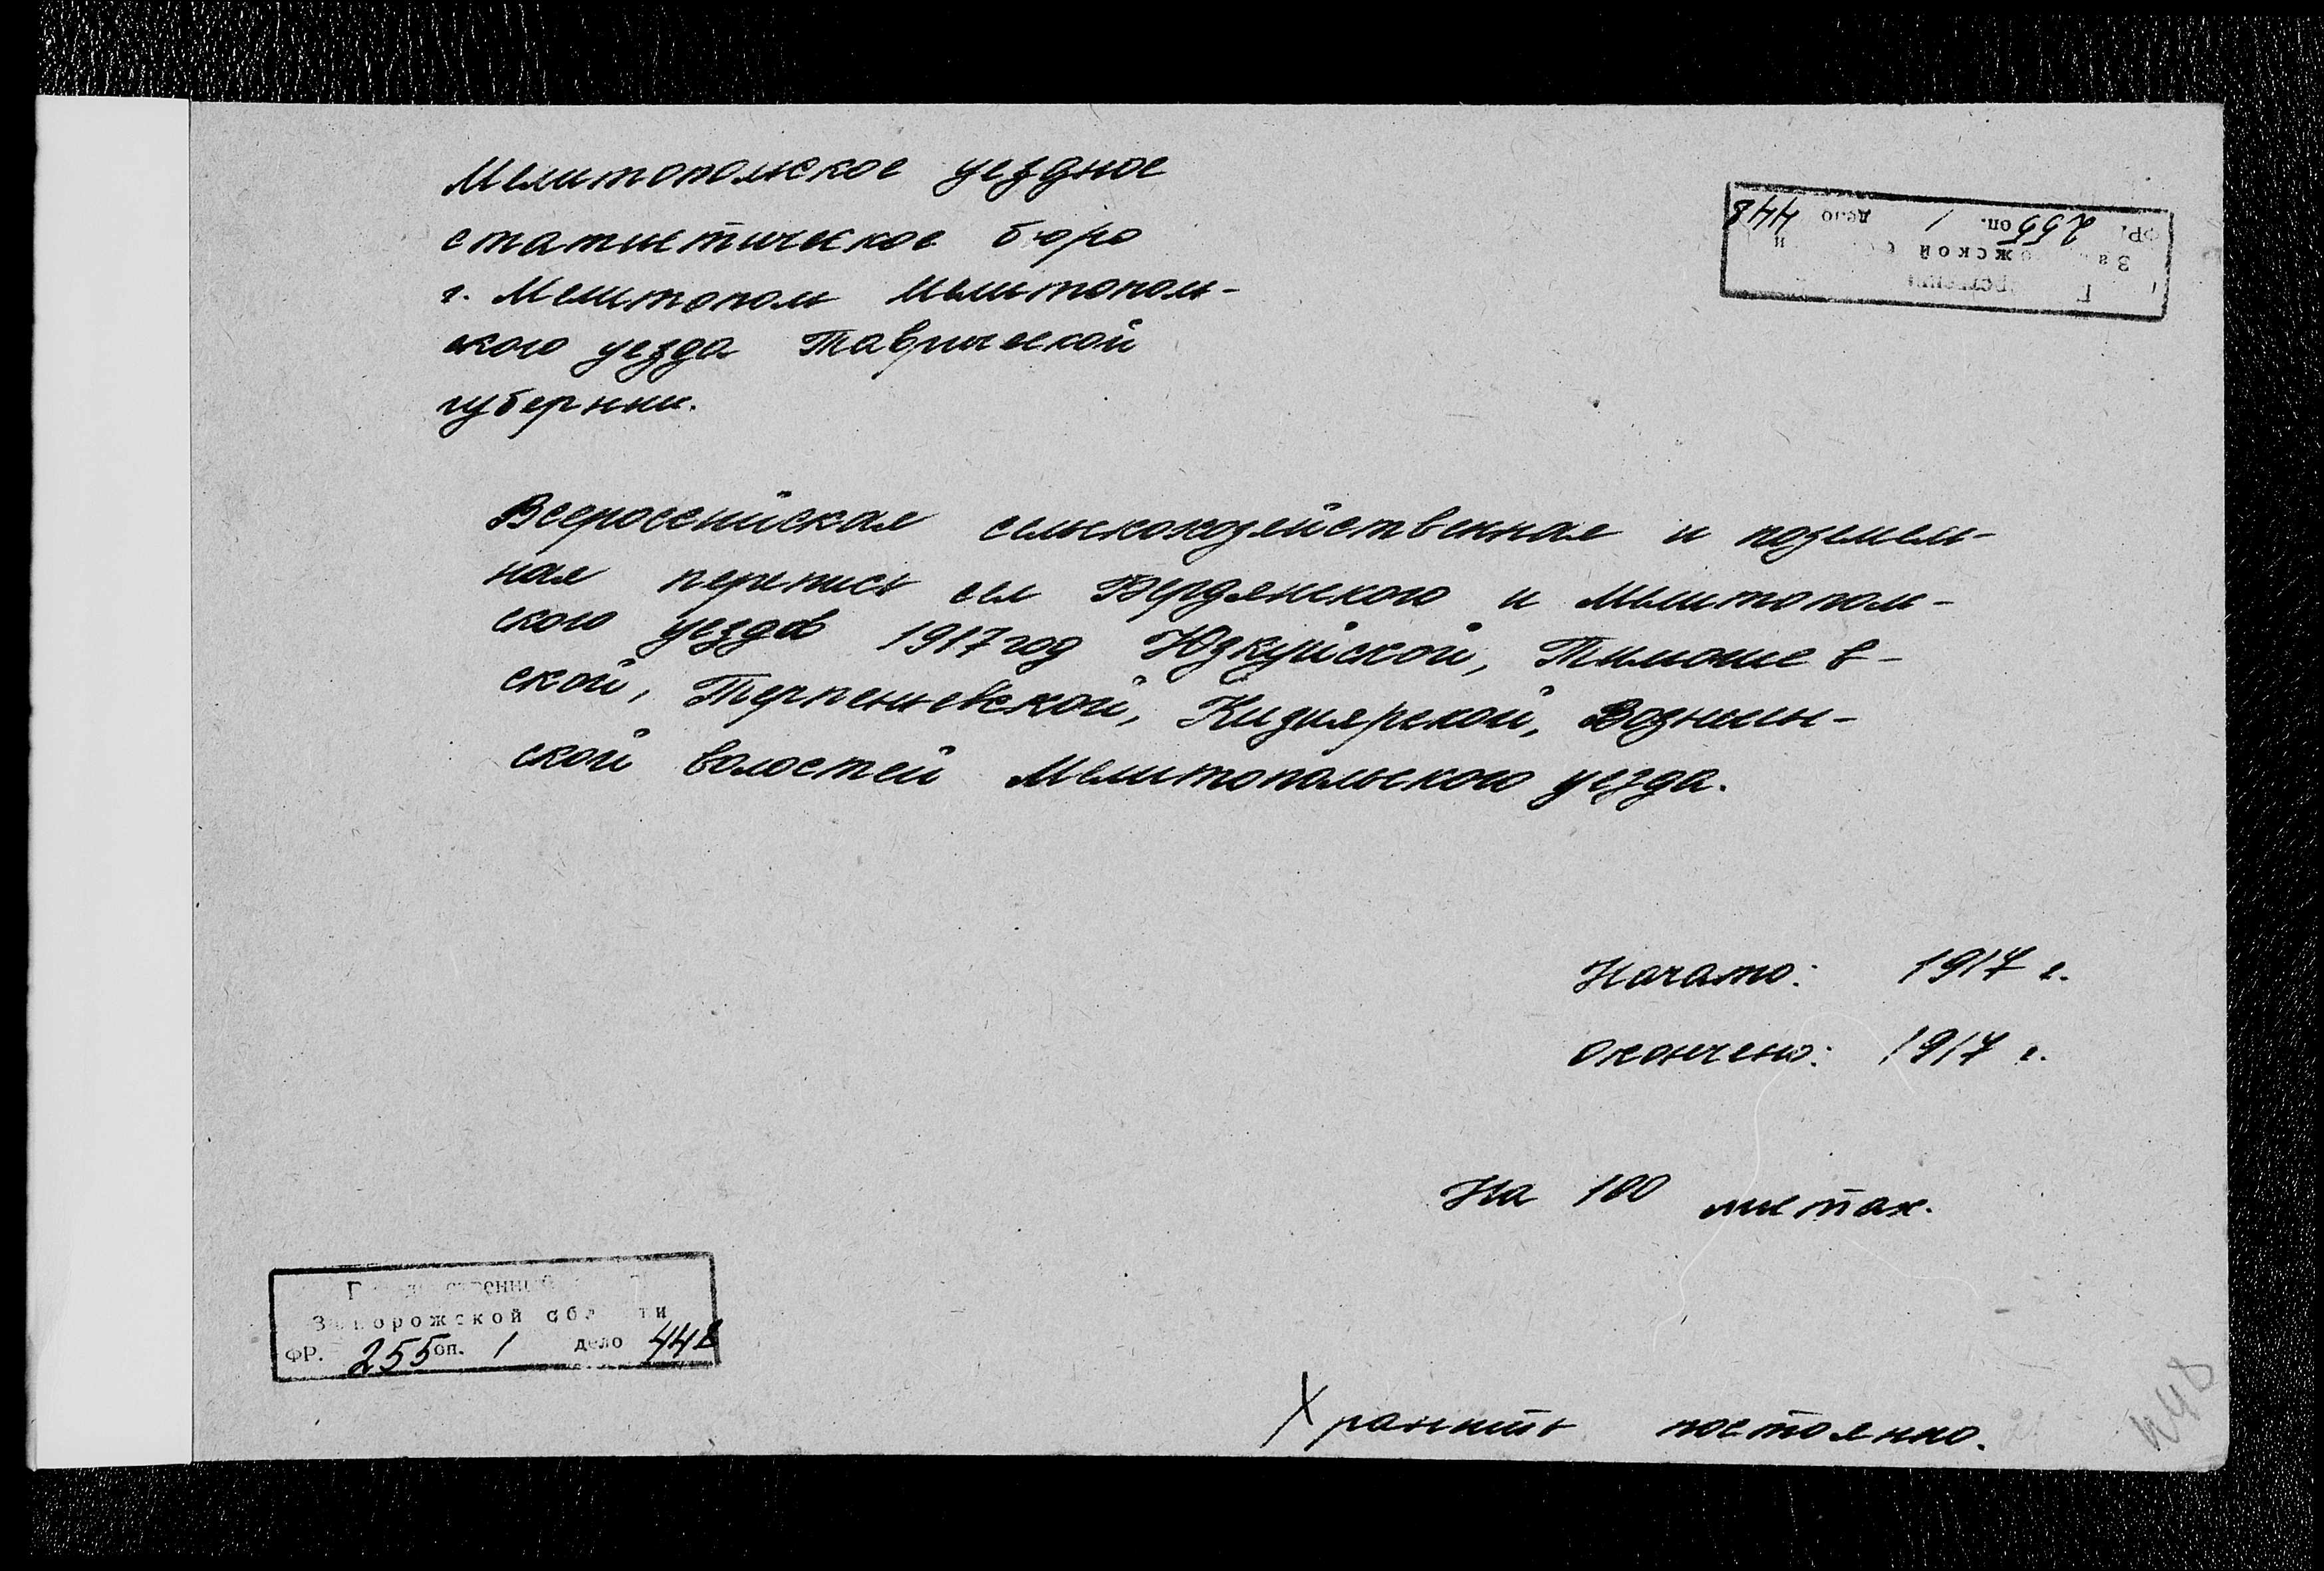 Мелитопольское уездное
статистическое бюро
г. Мелитополь Мелитополь-
ского уезда Таврической
губернии.
ФР. 255 оп. 1 дело 448
Всероссийская сельскохозяйственная и поземель-
ная перепись сел Бердянского и Мелитополь-
ского уездов 1917 год Юзкуйской, Тимошев-
ской, Терпеньевской, Кизиярской, Вознесен-
ской волостей Мелитопольского уезда.
Начато: 1917 г.
Окончено: 1917 г.
На 100 листах.
Государственный
Запорожской области
ФР. 255 оп. 1 дело 448
Хранить постоянно.
448